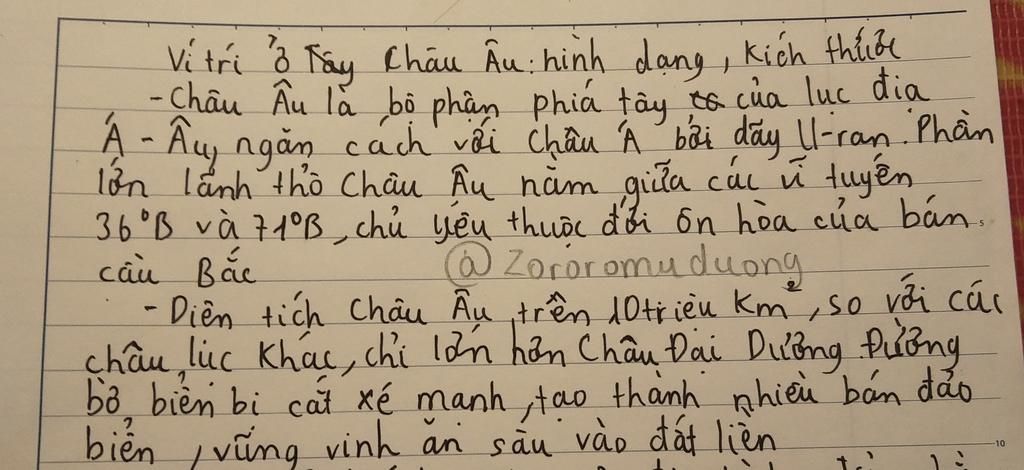 Ví trí ở Tây Châu Âu: hình dạng, kích thước
- Châu Âu là bộ phận phiá tây của lục địa
Á - Âu, ngăn cách với Châu Á bởi dãy U-ran. Phần
lớn lãnh thổ Châu Âu nằm giữa các vĩ tuyến
36°B và 71°B, chủ yếu thuộc đới ôn hòa của bán
cầu Bắc
@Zororomuduong
- Diên tích Châu Âu trên 10 triệu Km², so với các
châu lục khác, chỉ lớn hơn Châu Đại Dương. Đường
bờ biển bị cắt xé mạnh, tạo thành nhiều bán đảo
biển, vũng vịnh ăn sâu vào đất liền
10